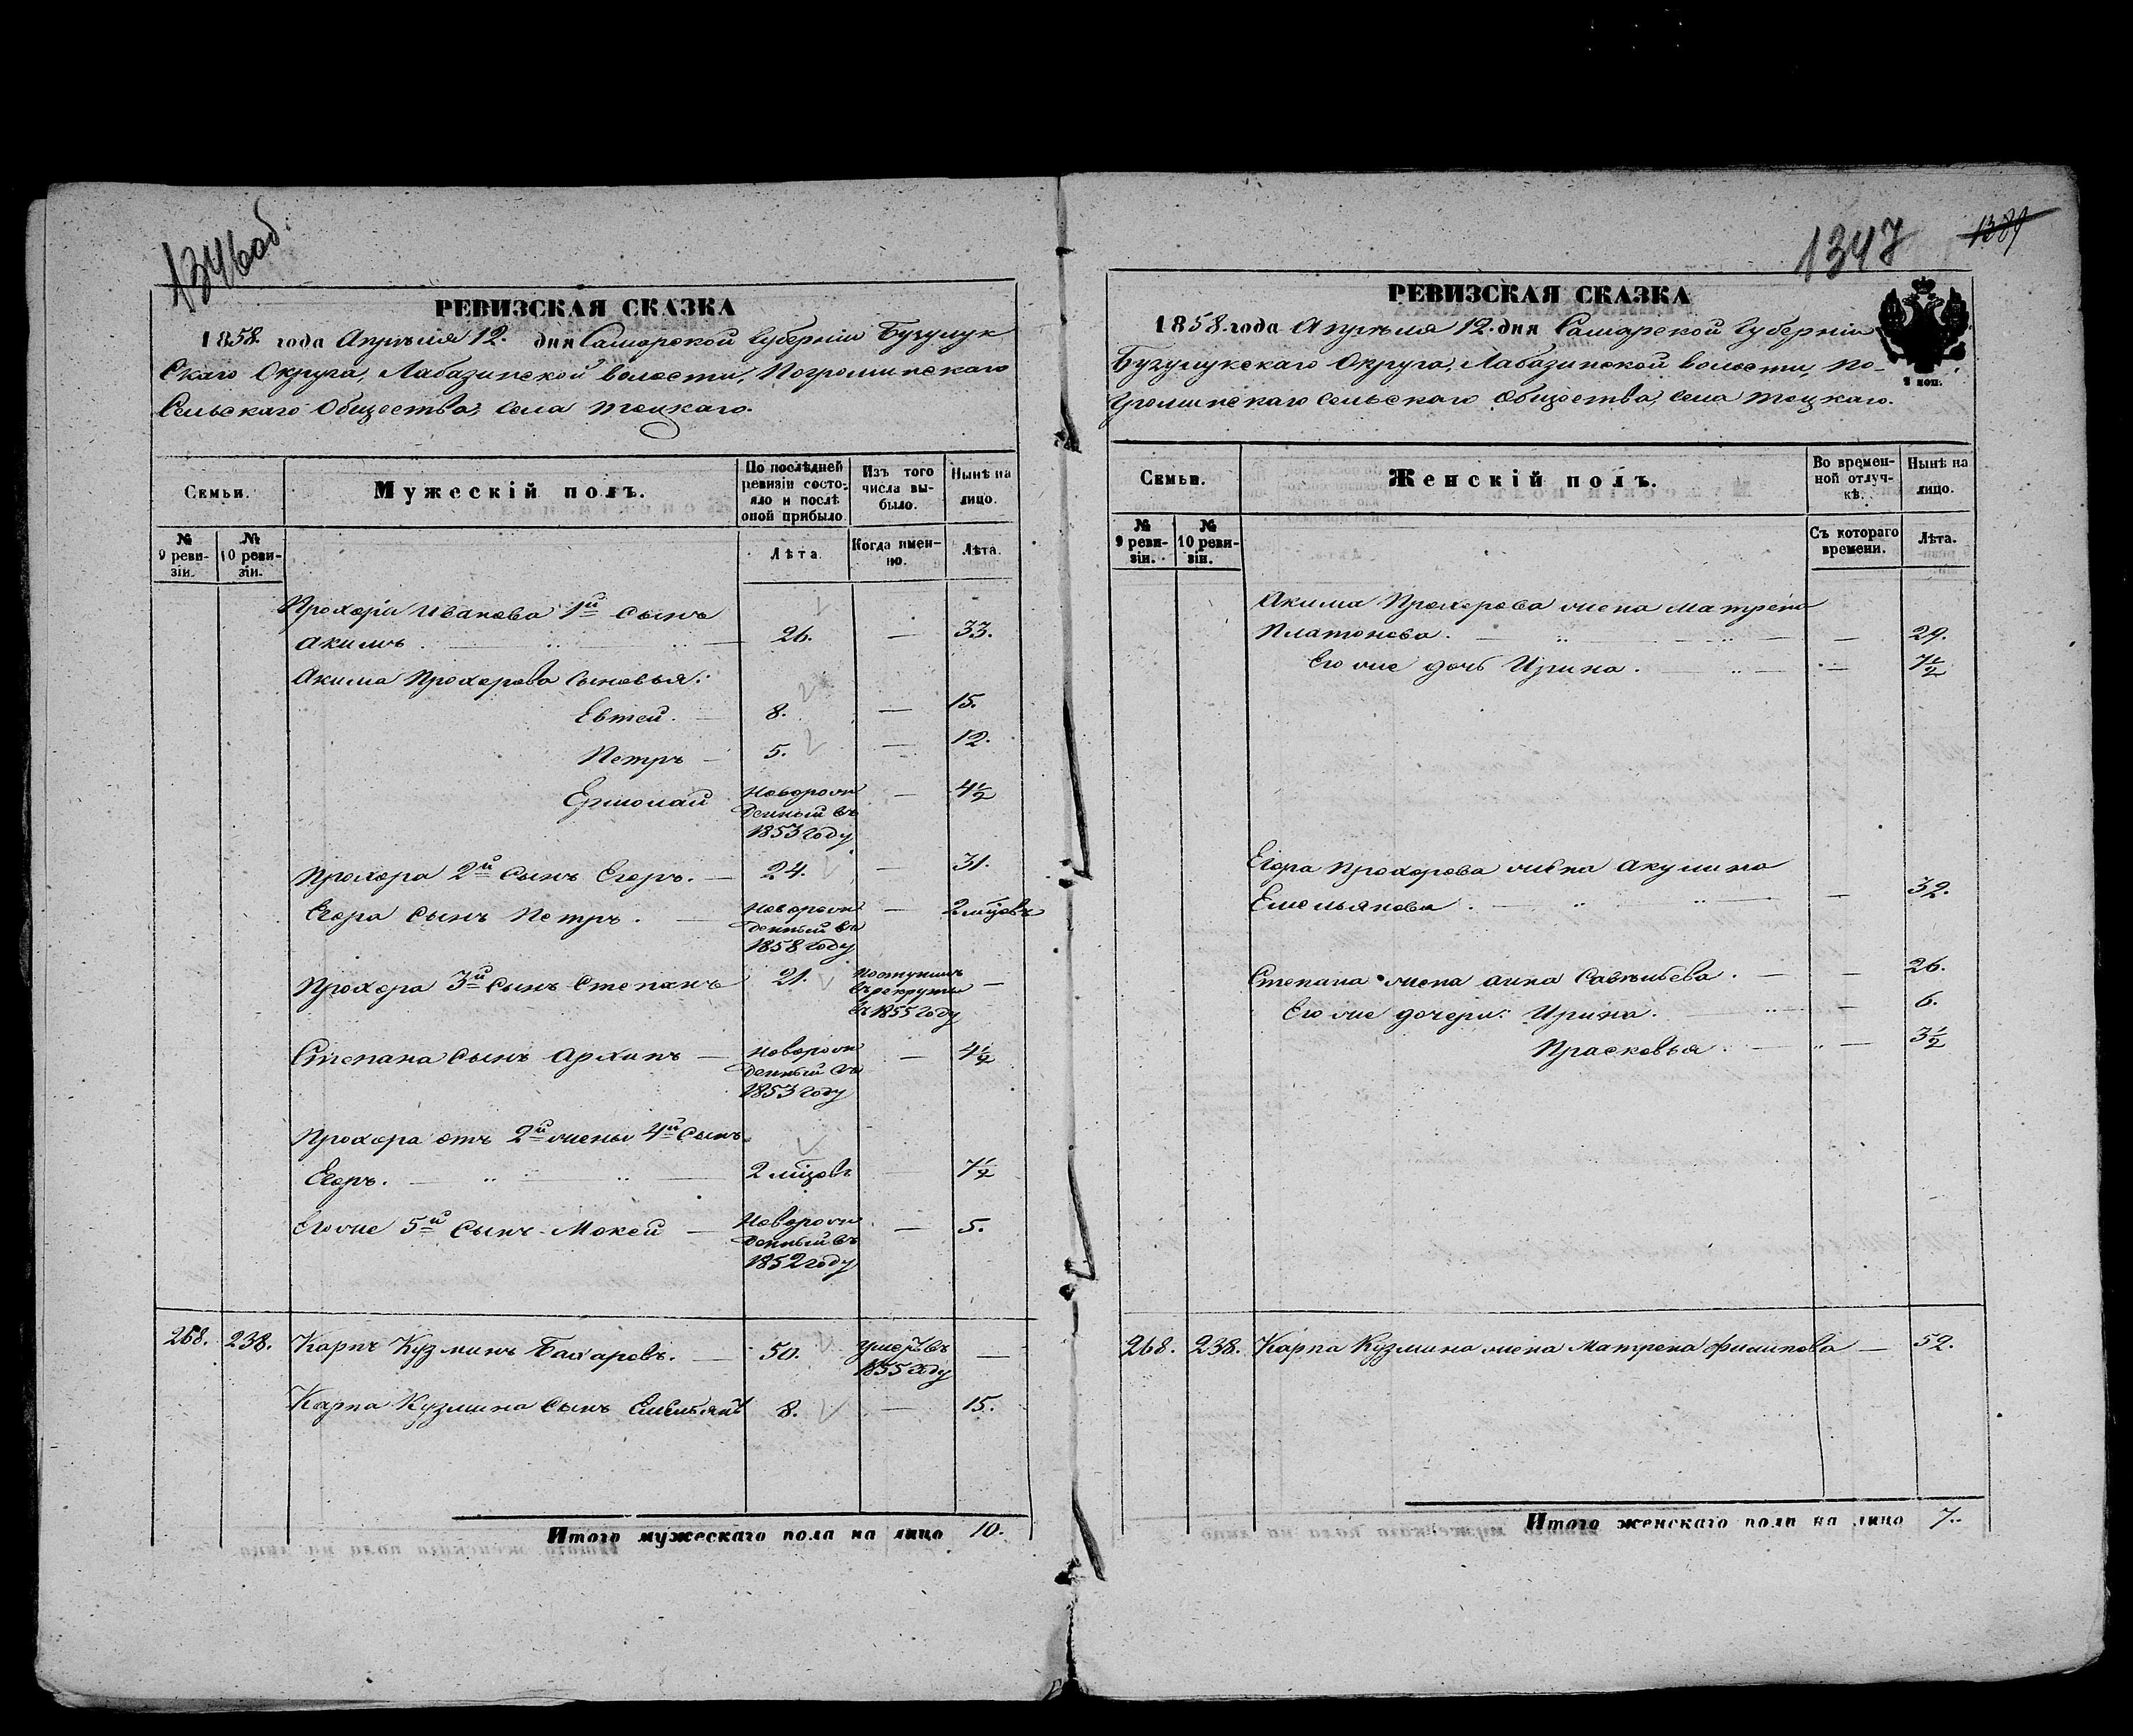 1346об.
РЕВИЗСКАЯ СКАЗКА
1858. года Апреля 12. дня Самарской Губерніи Бузулук
скаго Округа, Лабазинской волости, Погроминскаго
Сельскаго Общества, села Тоцкаго.
Семьи.
Мужескій полъ.
По послѣдней
ревизіи состо-
яло и послѣ
оной прибыло
Изъ того
числа вы-
было.
Нынѣ на
лицо.
№
9 реви-
зіи.
№
10 реви-
зіи.
Лѣта.
Когда имен-
но.
Лѣта.
Прохора Иванова 1й сынъ
Акимъ. 26. — 33.
Акима Прохорова сыновья:
Евтей. 8. — 15.
Петръ 5. — 12.
Ермолай Новорож — 4½
денный въ
1853 году
Прохора 2й сынъ Егоръ. 24. — 31.
Егора сынъ Петръ. Новорож — 2 мцовъ
денный въ
1858 году
Прохора 3й сынъ Степанъ 21. поступилъ —
въ рекруты
въ 1855 году
Степана сынъ Архипъ Новорож — 4½
денный въ
1853 году
Прохора отъ 2й жены 4й сынъ
Егоръ. 2 мцовъ — 7½
Его же 5й сынъ Мокей Новорож — 5.
денный въ
1852 году
268. 238. Карпъ Кузминъ Бахаревъ. 50. умеръ въ —
1855 году
Карпа Кузмина сынъ Емельянъ 8. — 15.
Итого мужескаго пола на лицо 10.
1347 1389
РЕВИЗСКАЯ СКАЗКА
1858. года Апреля 12. дня Самарской Губерніи
Бузулукскаго Округа, Лабазинской волости, По-
громинскаго сельскаго Общества, села Тоцкаго.
Семьи.
Женскій полъ.
Во времен-
ной отлуч-
кѣ.
Нынѣ на
лицо.
№
9 реви-
зіи.
№
10 реви-
зіи.
Съ котораго
времени.
Лѣта.
Акима Прохорова жена Матрена
Платонова. — 29.
Его же дочь Ирина. — 7½
Егора Прохорова жена Акулина
Емельянова. — 32.
Степана жена Анна Савельева. — 26.
Его же дочери: Ирина. — 6.
Прасковья. — 3½
268. 238. Карпа Кузмина жена Матрена Филипова — 52.
Итого женскаго пола на лицо 7.